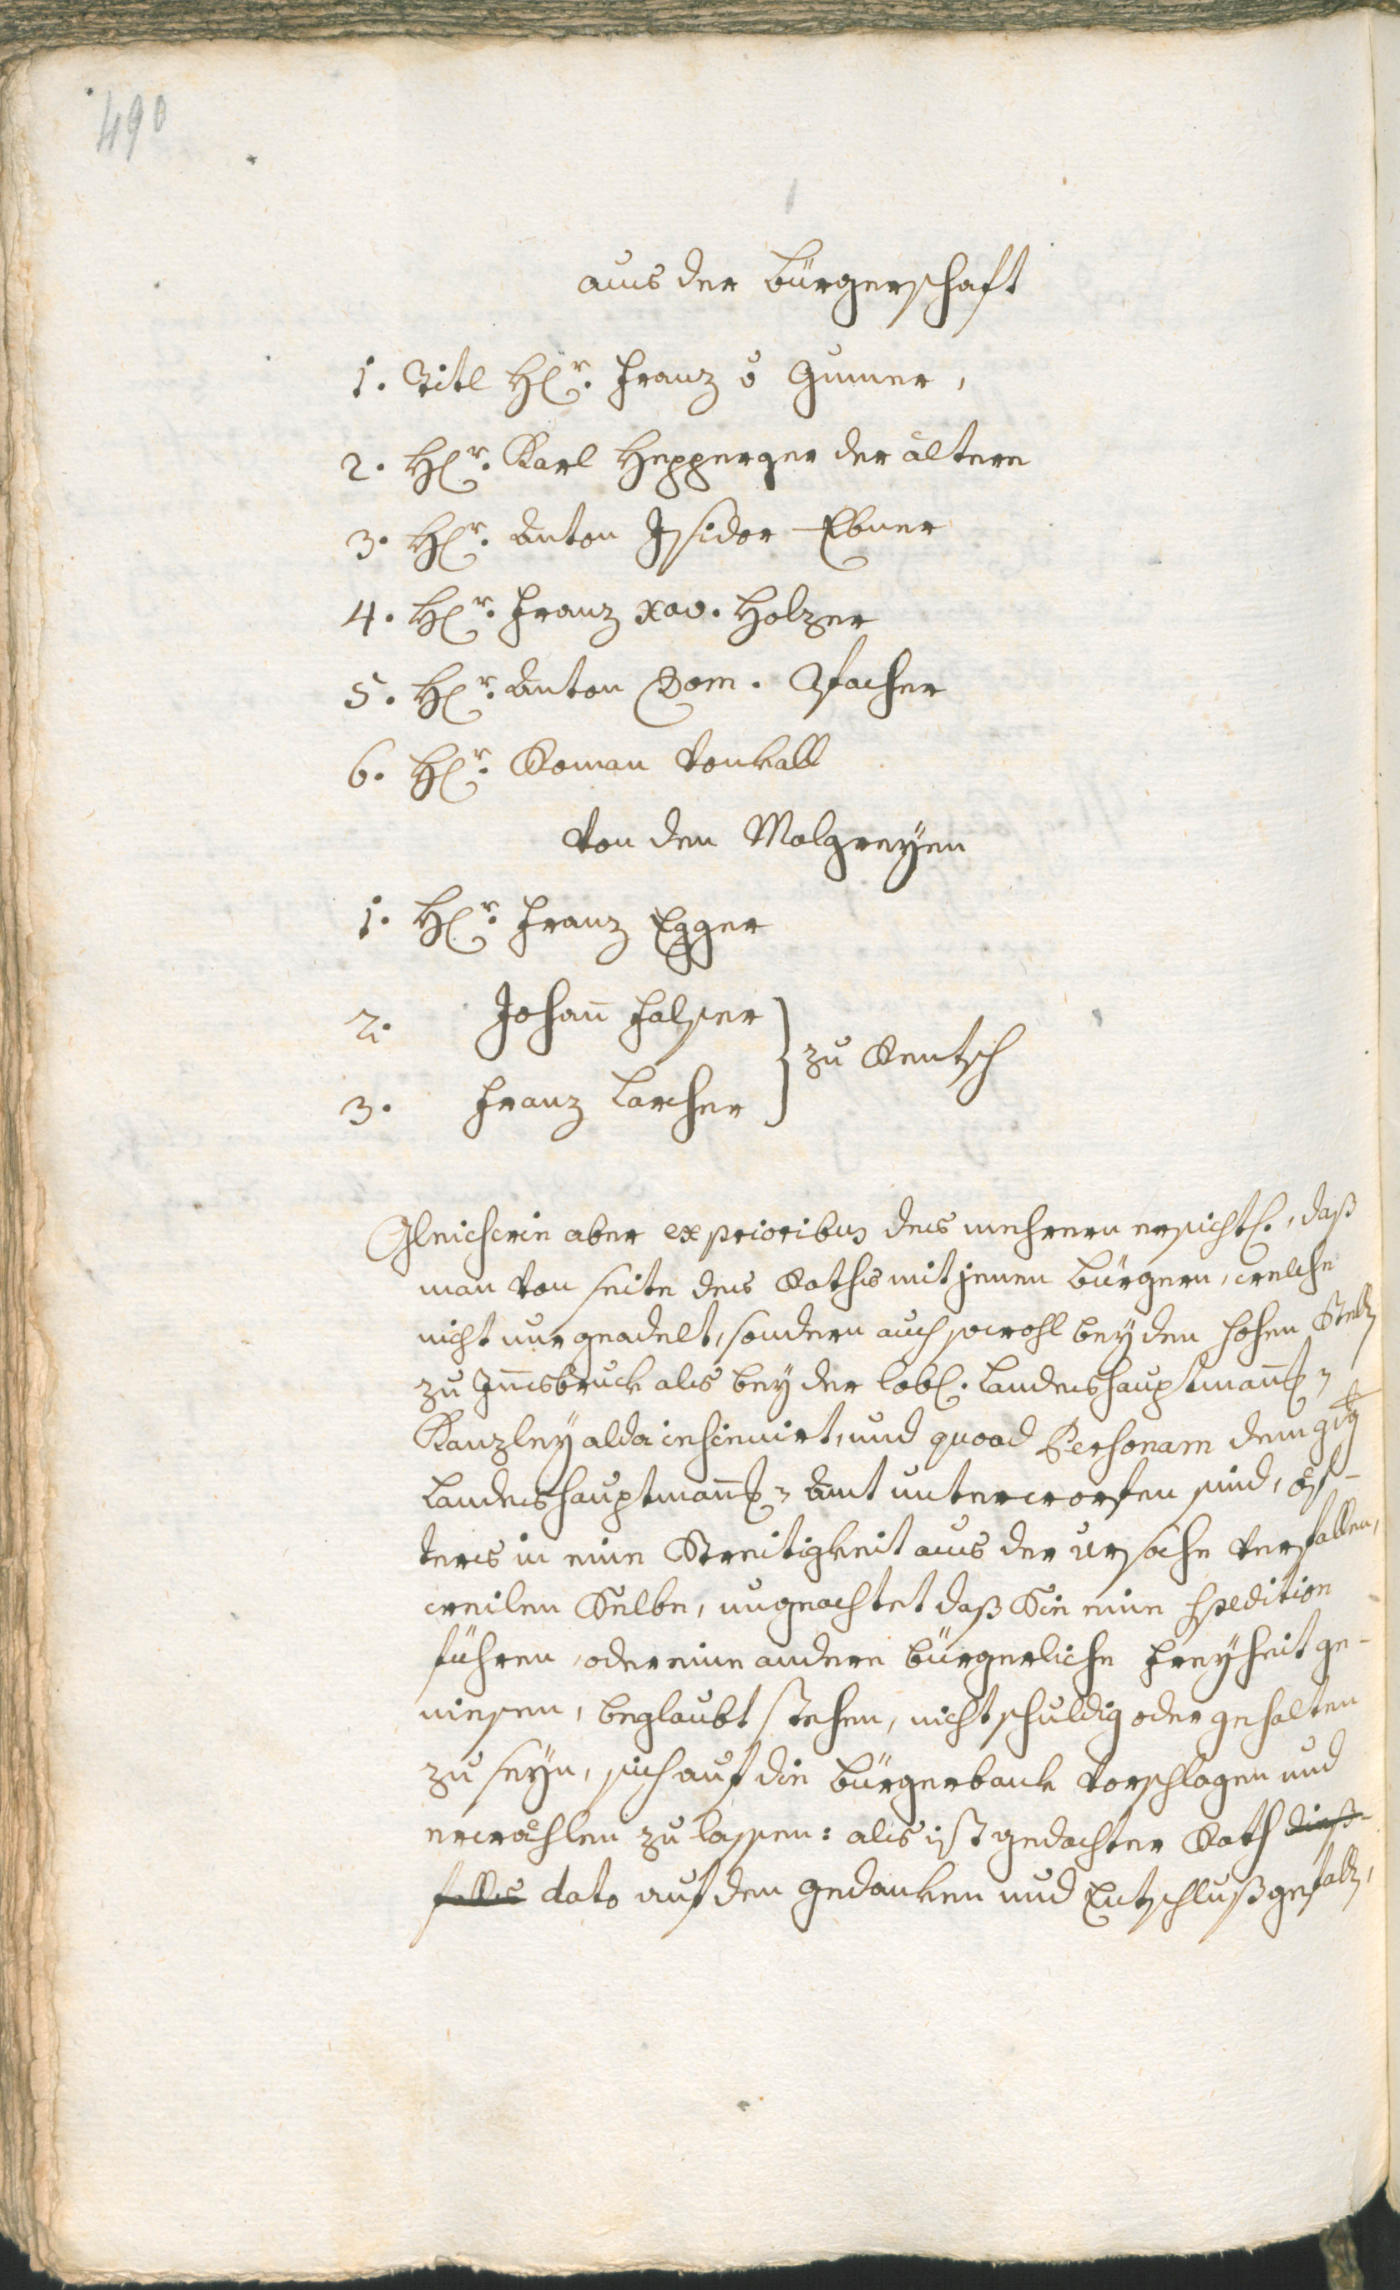 490
aus der Bürgerschaft
1. Titl H(r. Franz v Gumer,
2. H(r. Karl Hepperger der ältere
3. H(r. Anton Isidor Ebner
4. H(r. Franz Xav. Holzer
5. H(r. Anton Dom. Pfacher
6. H(r. Roman Vonkall
Von den Malgreyen
1. H(r. Franz Egger
2. Johan̄ Falser
3. Franz Larcher
} zu Rentsch
Gleichwie aber ex prioribus des mehrern ersichtl., daß
man von seite des Raths mit jenen Bürgern, welche
nicht nur geadelt, sondern auch sowohl bey den hohen Stelln
zu Jn̄sbruck als bey der löbl. Landeshauptman̄s
Kanzley alda insinuirt, und quoad Personam dem
Landeshauptman̄s Amt unterworfen sind, öf-
ters in eine Streitigkeit aus der ursache verfallen,
weilen Selbe, ungeachtet daß Sie eine Spedition
führen, oder eine andere bürgerliche Freyheit ge-
niesen, beglaubt stehen, nicht schuldig oder gehalten
zu seyn, sich auf die Bürgerbank vorschlagen und
erwählen zu lassen: als ist gedachter Rath dieß-
falls dato auf den gedanken und Entschluß gefalln,